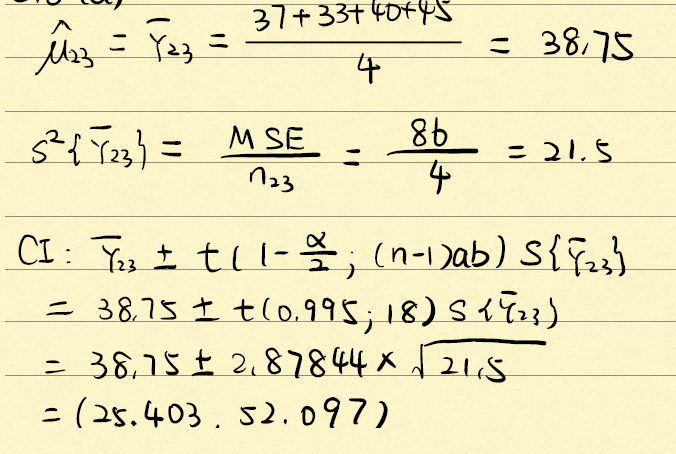 μ̂23 = Ȳ23 = (37+33+40+45)/4 = 38.75
S²{Ȳ23} = MSE/n23 = 86/4 = 21.5
CI: Ȳ23 ± t(1-α/2; (n-1)ab) S{Ȳ23}
= 38.75 ± t(0.995; 18) S{Ȳ23}
= 38.75 ± 2.87844 × √21.5
= (25.403, 52.097)